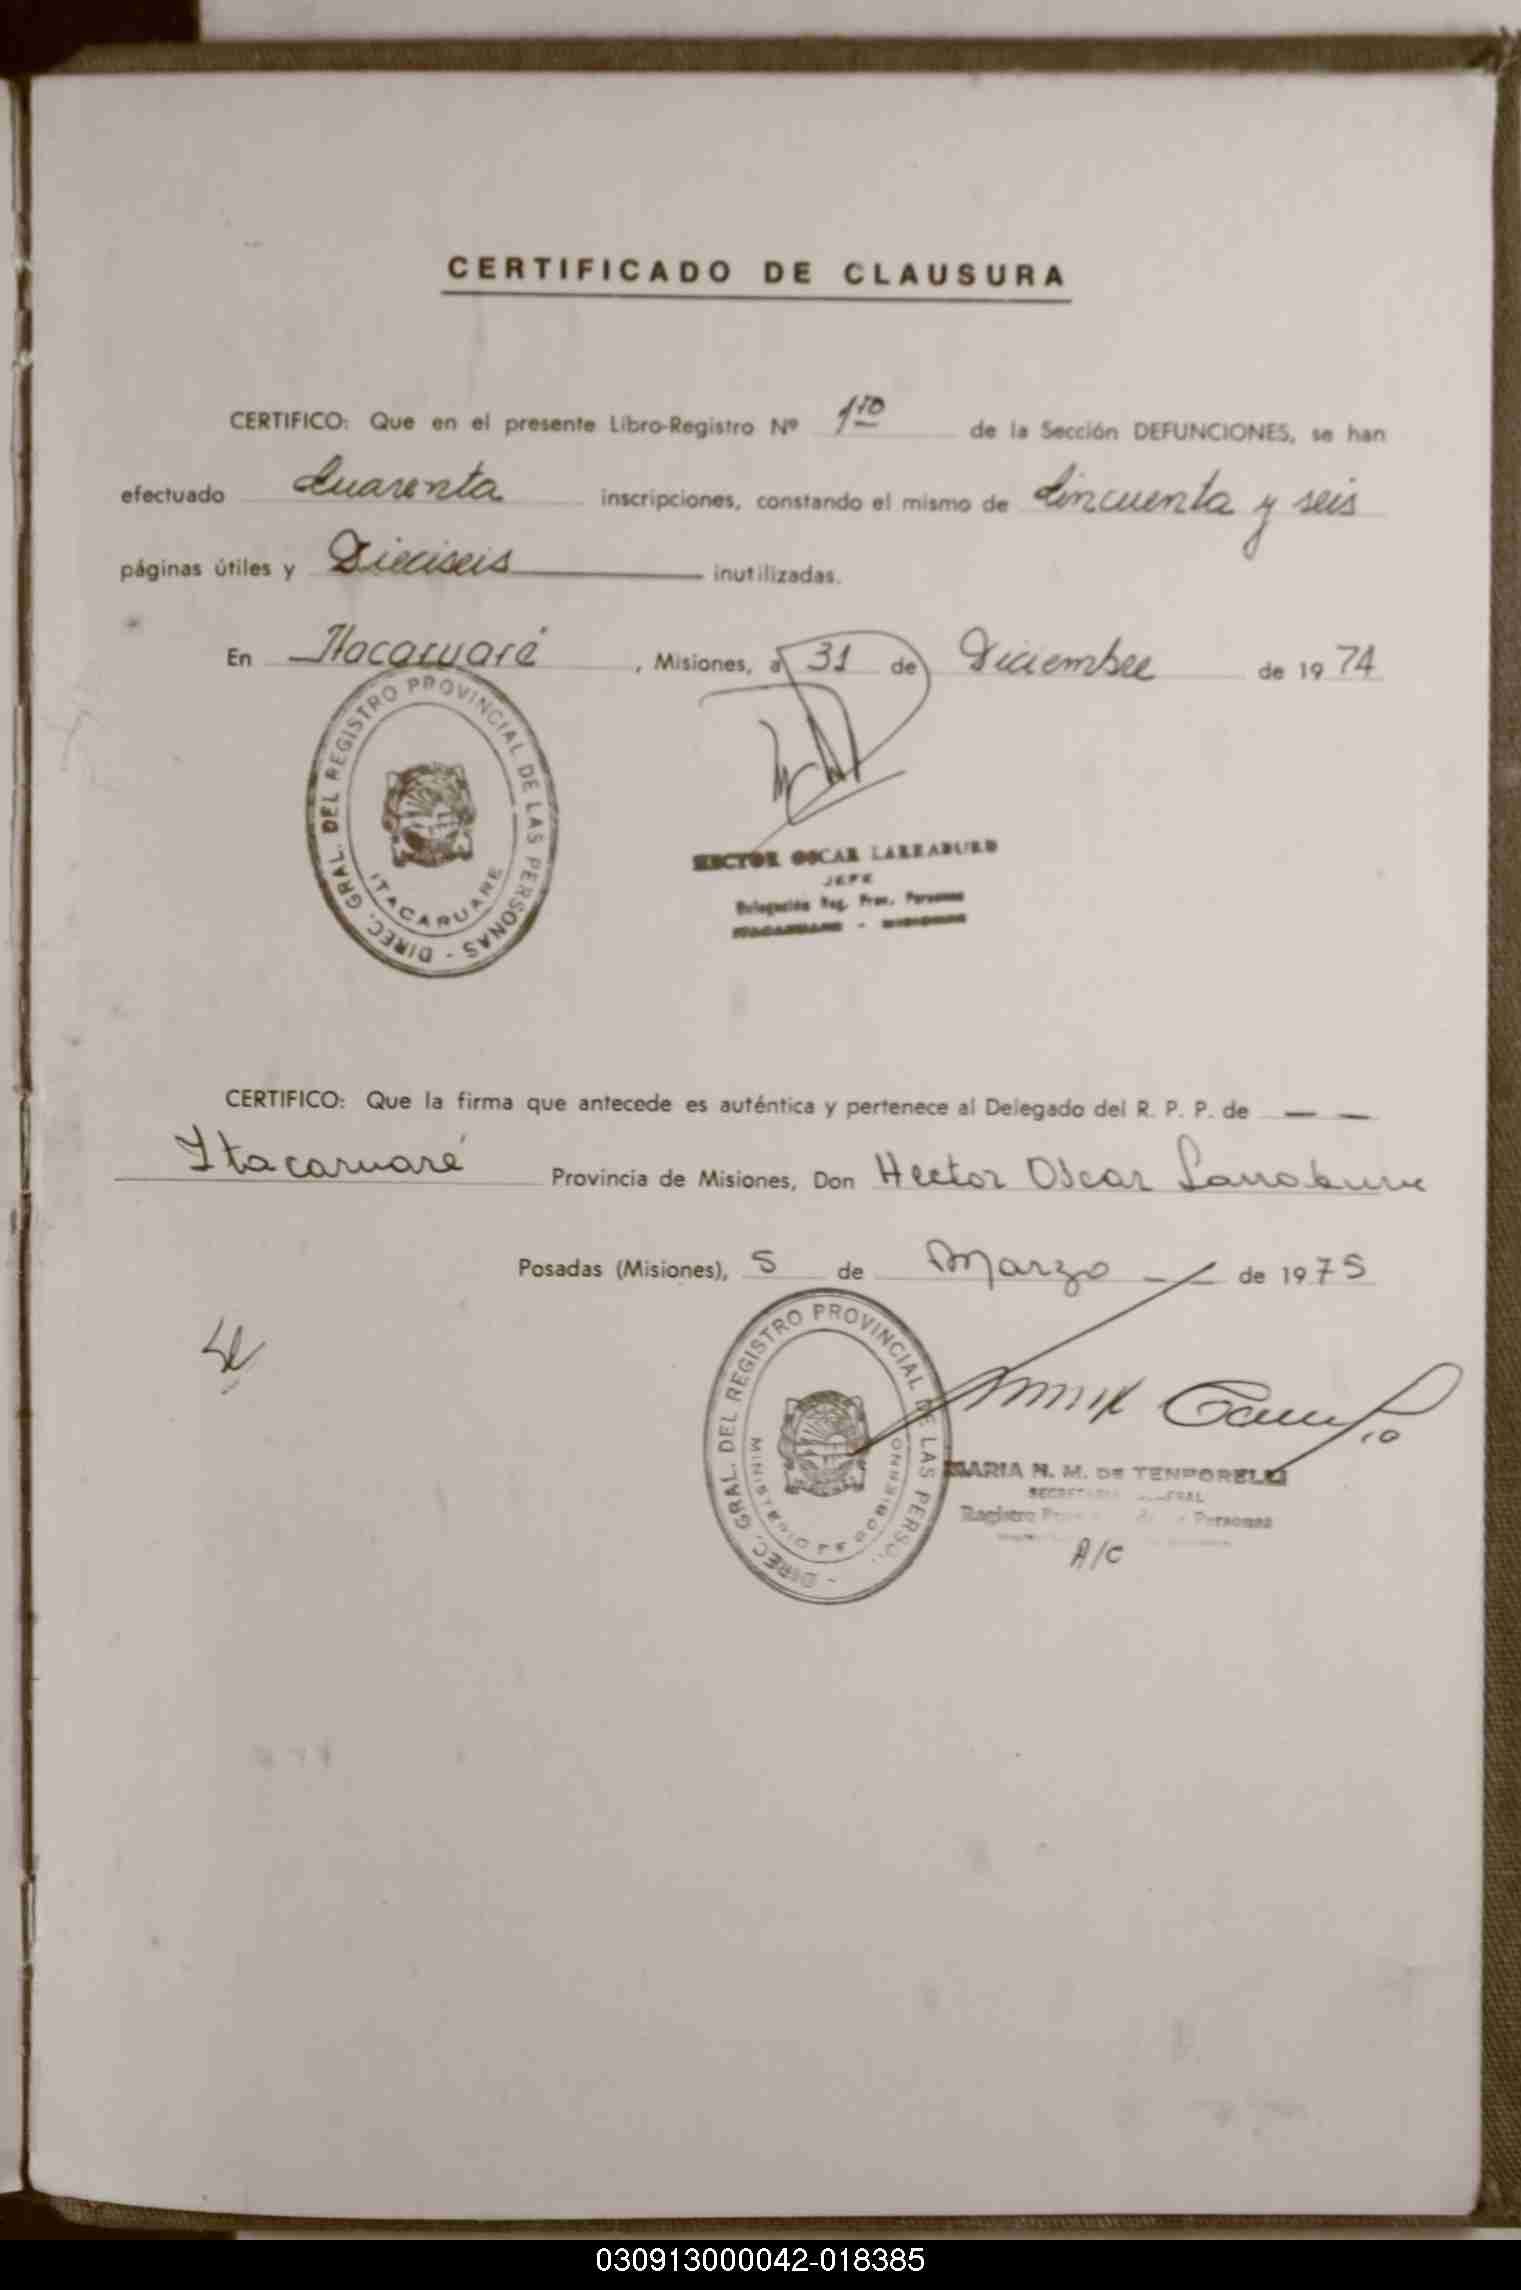 CERTIFICADO DE CLAUSURA
CERTIFICO: Que en el presente Libro-Registro Nº 1ro de la Sección DEFUNCIONES, se han
efectuado Cuarenta inscripciones, constando el mismo de Cincuenta y seis
páginas útiles y Dieciseis inutilizadas.
En Itacaruaré, Misiones, a 31 de Diciembre de 1974
DIREC. GRAL. DEL REGISTRO PROVINCIAL DE LAS PERSONAS -
ITACARUARE
HECTOR OSCAR LARRABURO
JEFE
Delegación Reg. Prov. Personas
ITACARUARE - MISIONES
CERTIFICO: Que la firma que antecede es auténtica y pertenece al Delegado del R. P. P. de — —
Itacaruaré Provincia de Misiones, Don Hector Oscar
Posadas (Misiones), 5 de Marzo — — de 1975
DIREC. GRAL. DEL REGISTRO PROVINCIAL DE LAS PERSO.. -
MINISTERIO DE GOBIERNO
MARIA N. M. DE TENPORELLI
SECRETARIA GENERAL
Registro Personas
A/C
030913000042-018385